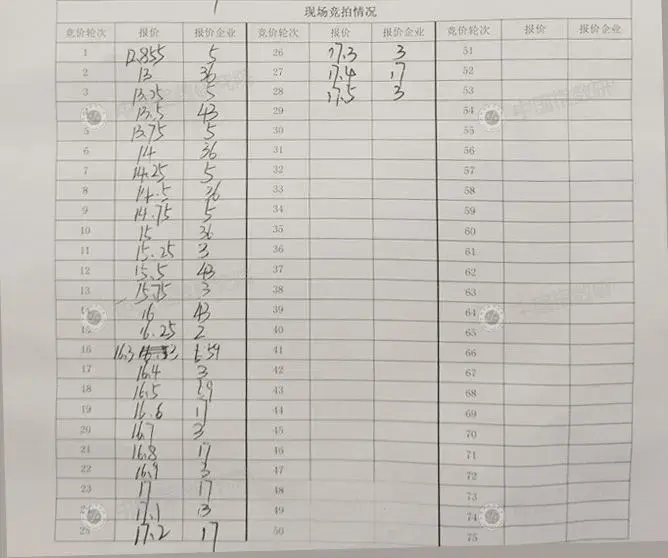 现场竞拍情况
竞价轮次 报价 报价企业 竞价轮次 报价 报价企业 竞价轮次 报价 报价企业
1 12.855 5 26 17.3 3 51
2 13 36 27 17.4 17 52
3 13.25 5 28 17.5 3 53
4 13.5 43 29 54
5 13.75 5 30 55
6 14 36 31 56
7 14.25 5 32 57
8 14.5 36 33 58
9 14.75 5 34 59
10 15 36 35 60
11 15.25 3 36 61
12 15.5 43 37 62
13 15.75 3 38 63
14 16 43 39 64
15 16.25 2 40 65
16 16.3 59 41 66
17 16.4 3 42 67
18 16.5 43 68
19 16.6 17 44 69
20 16.7 3 45 70
21 16.8 17 46 71
22 16.9 3 47 72
23 17 17 48 73
24 17.1 3 49 74
25 17.2 17 50 75